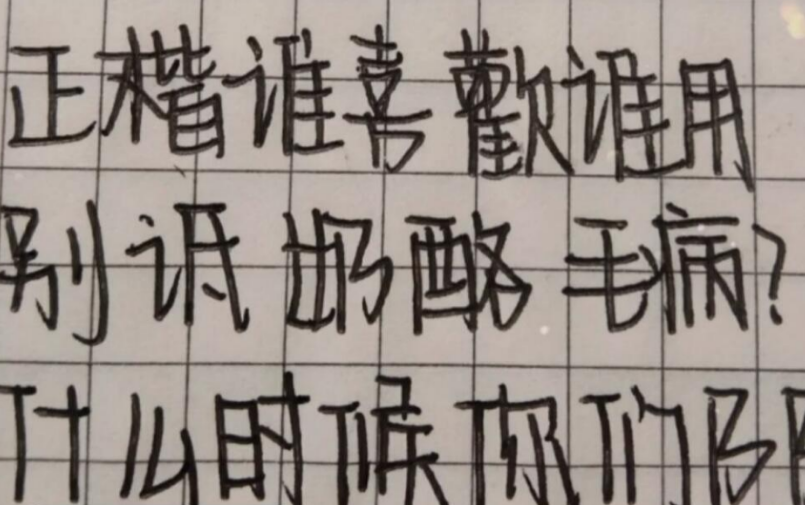 正楷谁喜歡谁用
别诋奶酪毛病?
什么时候你们乃